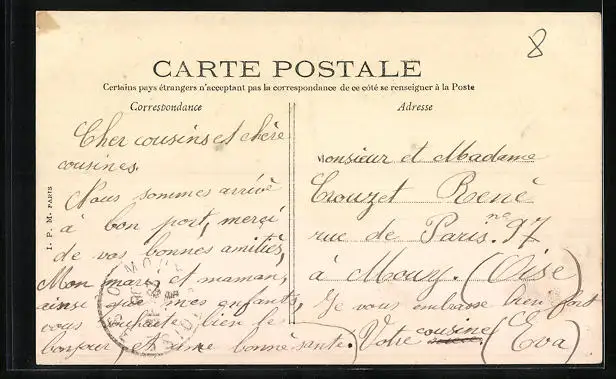 8
CARTE POSTALE
Certains pays étrangers n'acceptant pas la correspondance de ce côté se renseigner à la Poste
Correspondance
Cher cousins et chère
cousines.
Nous sommes arrivé
à bon port, merçi
de vos bonnes amitiés,
Mon mari et maman,
ainse que mes enfants,
vous souhaite bien le
bonjour, et une bonne santé.
Adresse
Monsieur et Madame
Crouzet René
rue de Paris. nº 97
à Mouy. (Oise)
Je vous embrasse bien fort
Votre cousine (Eva)
I. P. M. PARIS